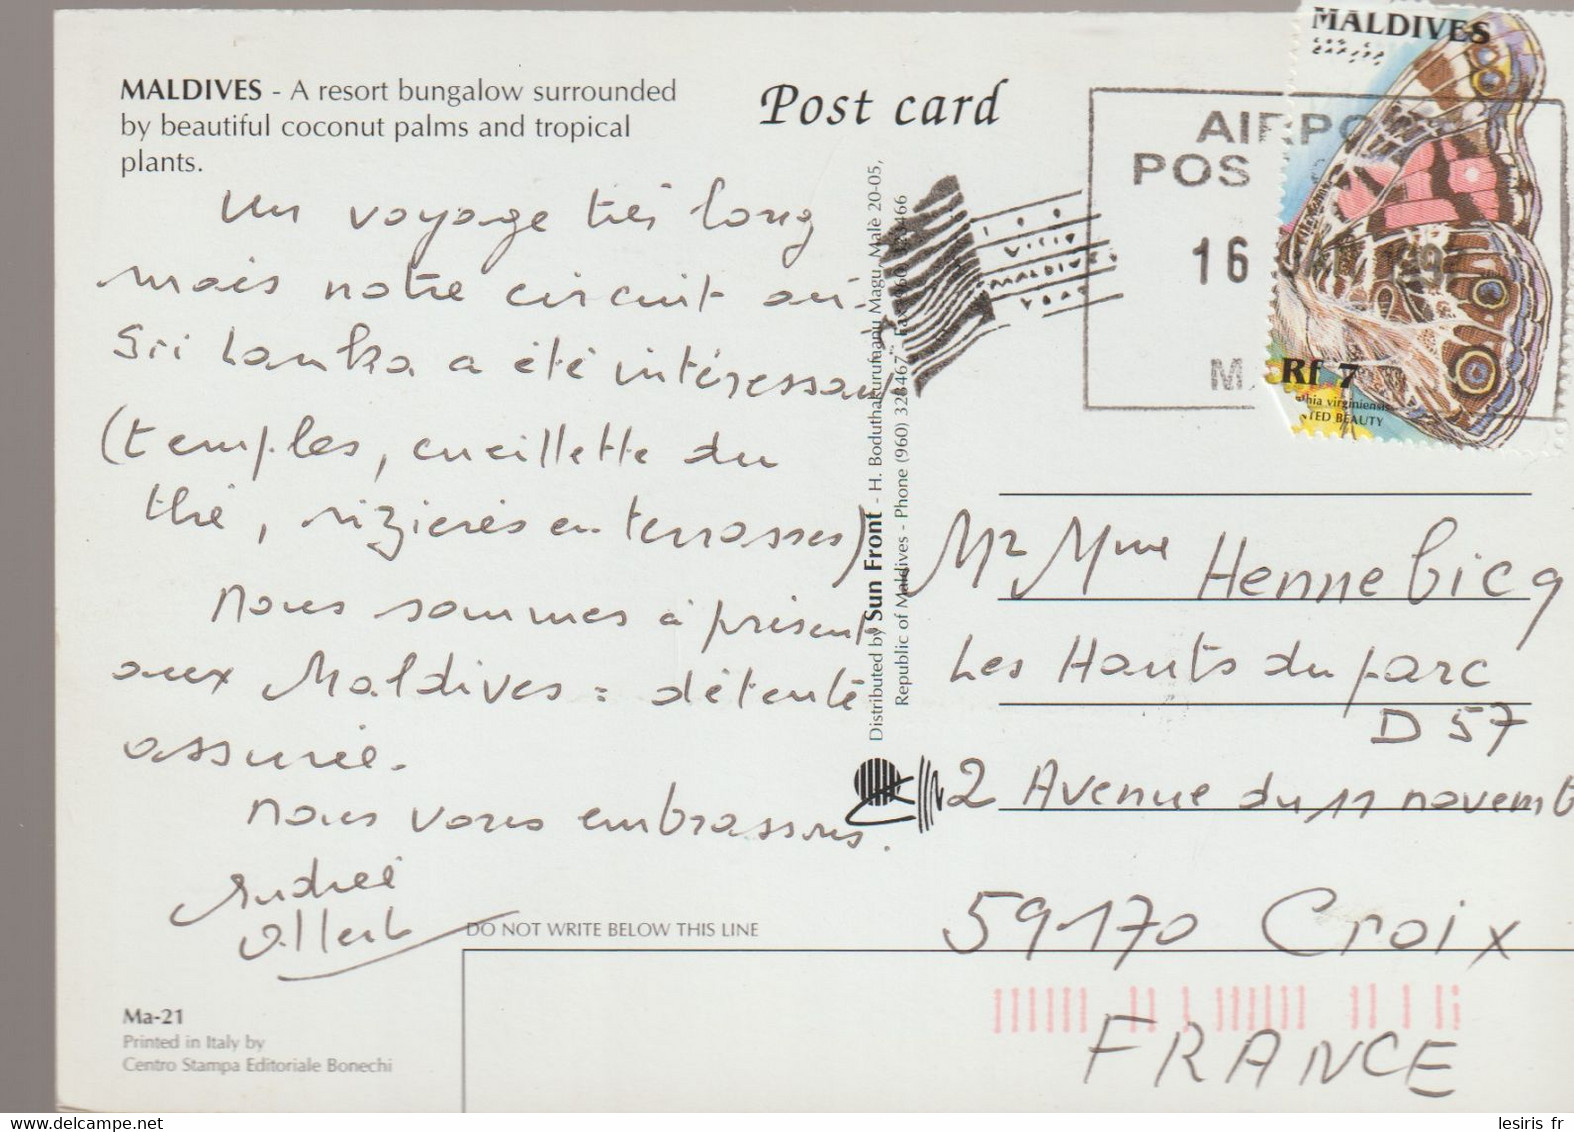 MALDIVES - A resort bungalow surrounded
by beautiful coconut palms and tropical
plants.
Post card
Un voyage très long
mais notre circuit au
Sri Lanka a été intéressant
(temples, cueillette du
thé, rizières en terrasses)
Nous sommes à présent
aux Maldives : détente
assurée.
Nous vous embrassons.
Andrée
DO NOT WRITE BELOW THIS LINE
Ma-21
Printed in Italy by
Centro Stampa Editoriale Bonechi
Distributed by Sun Front - H. Boduthakurufaanu Magu, Malè 20-05,
Republic of Maldives - Phone (960) 328467 - Fax (960) 328466
VISIT
MALDIVES
YEAR
AIRPORT
POS
16 JAN 199
M
MALDIVES
Rf 7
hia virginiensis
TED BEAUTY
Mr Mme Hennebicq
Les Hauts du parc
D 57
2 Avenue du 11 novemb
59170 Croix
FRANCE
lesiris fr